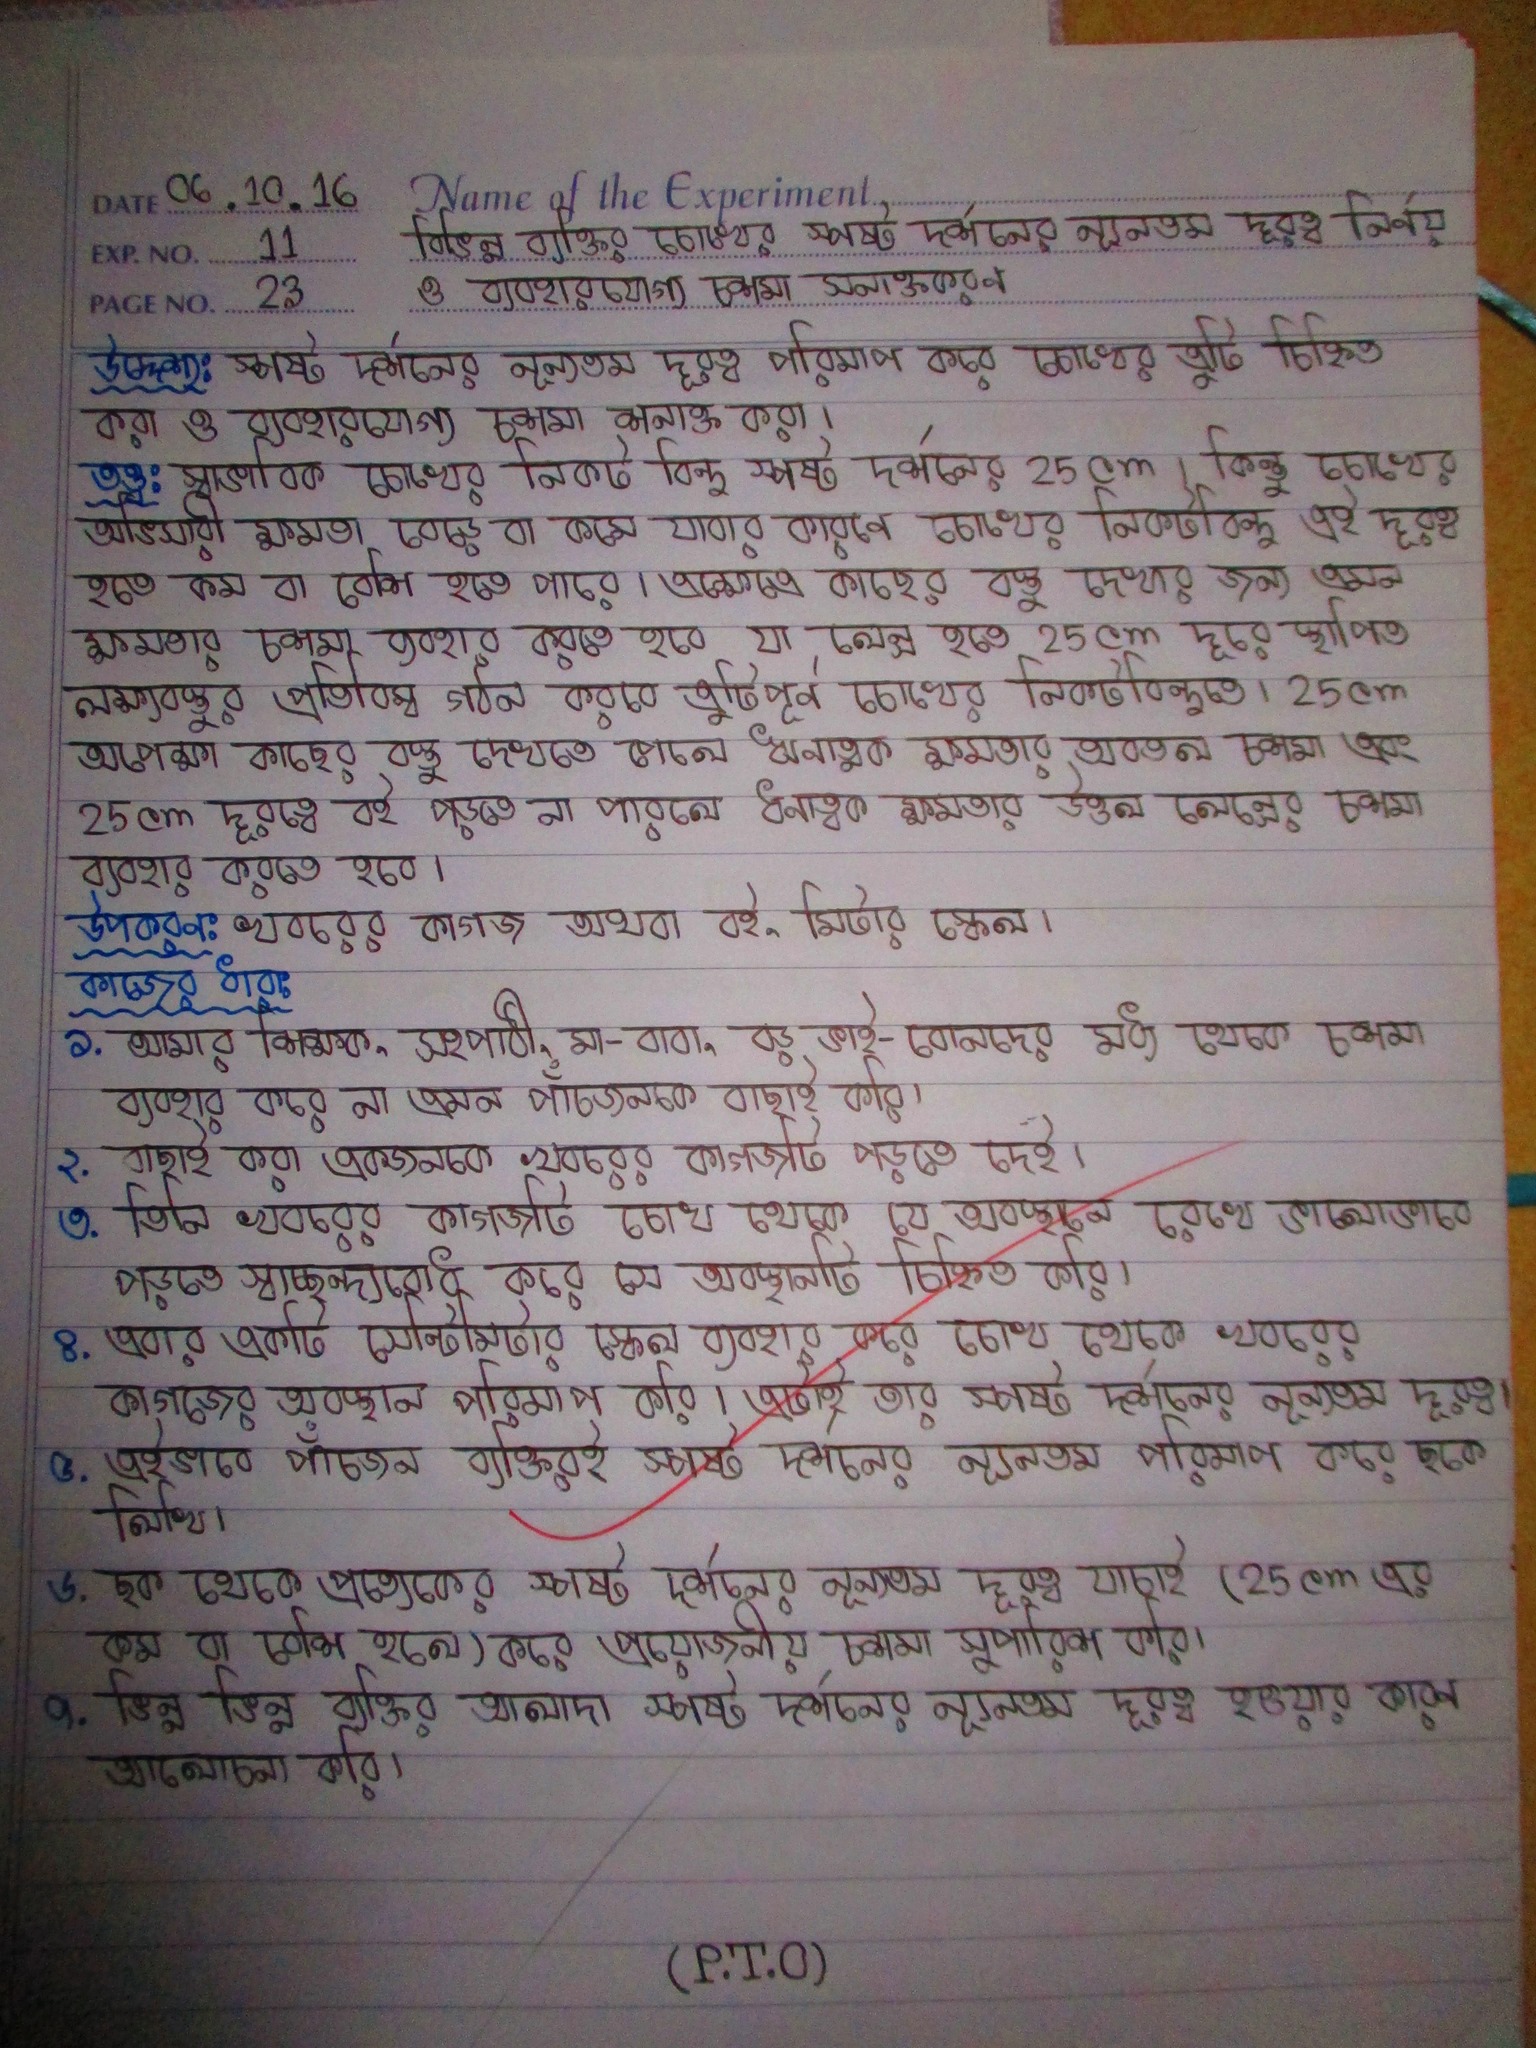 DATE 06.10.16 Name of the Experiment
EXP. NO. 11 বিভিন্ন ব্যক্তির চোখের স্পষ্ট দর্শনের ন্যূনতম দূরত্ব নির্ণয়
PAGE NO. 23 ও ব্যবহারযোগ্য চশমা সনাক্তকরণ
উদ্দেশ্য: স্পষ্ট দর্শনের নূন্যতম দূরত্ব পরিমাপ করে চোখের ত্রুটি চিহ্নিত
করা ও ব্যবহারযোগ্য চশমা শনাক্ত করা।
তত্ত্ব: স্বাভাবিক চোখের নিকট বিন্দু স্পষ্ট দর্শনের 25 cm। কিন্তু চোখের
অভিসারী ক্ষমতা বেড়ে বা কমে যাবার কারণে চোখের নিকটবিন্দু এই দূরত্ব
হতে কম বা বেশি হতে পারে। এক্ষেত্রে কাছের বস্তু দেখার জন্য এমন
ক্ষমতার চশমা ব্যবহার করতে হবে যা লেন্স হতে 25 cm দূরে স্থাপিত
লক্ষ্যবস্তুর প্রতিবিম্ব গঠন করবে ত্রুটিপূর্ণ চোখের নিকটবিন্দুতে। 25 cm
অপেক্ষা কাছের বস্তু দেখতে পেলে ঋনাত্নক ক্ষমতার অবতল চশমা এবং
25 cm দূরত্বে বই পড়তে না পারলে ধনাত্বক ক্ষমতার উত্তল লেন্সের চশমা
ব্যবহার করতে হবে।
উপকরণ: খবরের কাগজ অথবা বই, মিটার স্কেল।
কাজের ধারা:
১. আমার শিক্ষক, সহপাঠী, মা-বাবা, বড় ভাই-বোনদের মধ্য থেকে চশমা
ব্যবহার করে না এমন পাঁচজনকে বাছাই করি।
২. বাছাই করা একজনকে খবরের কাগজটি পড়তে দেই।
৩. তিনি খবরের কাগজটি চোখ থেকে যে অবস্থানে রেখে ভালোভাবে
পড়তে স্বাচ্ছন্দ্যবোধ করে সে অবস্থানটি চিহ্নিত করি।
৪. এবার একটি সেন্টিমিটার স্কেল ব্যবহার করে চোখ থেকে খবরের
কাগজের অবস্থান পরিমাপ করি। এটাই তার স্পষ্ট দর্শনের নূন্যতম দূরত্ব।
৫. এইভাবে পাঁচজন ব্যক্তিরই স্পষ্ট দর্শনের ন্যূনতম পরিমাপ করে ছকে
লিখি।
৬. ছক থেকে প্রত্যেকের স্পষ্ট দর্শনের নূন্যতম দূরত্ব যাচাই (25 cm এর
কম বা বেশি হলে) করে প্রয়োজনীয় চশমা সুপারিশ করি।
৭. ভিন্ন ভিন্ন ব্যক্তির আলাদা স্পষ্ট দর্শনের ন্যূনতম দূরত্ব হওয়ার কারণ
আলোচনা করি।
(P.T.O)